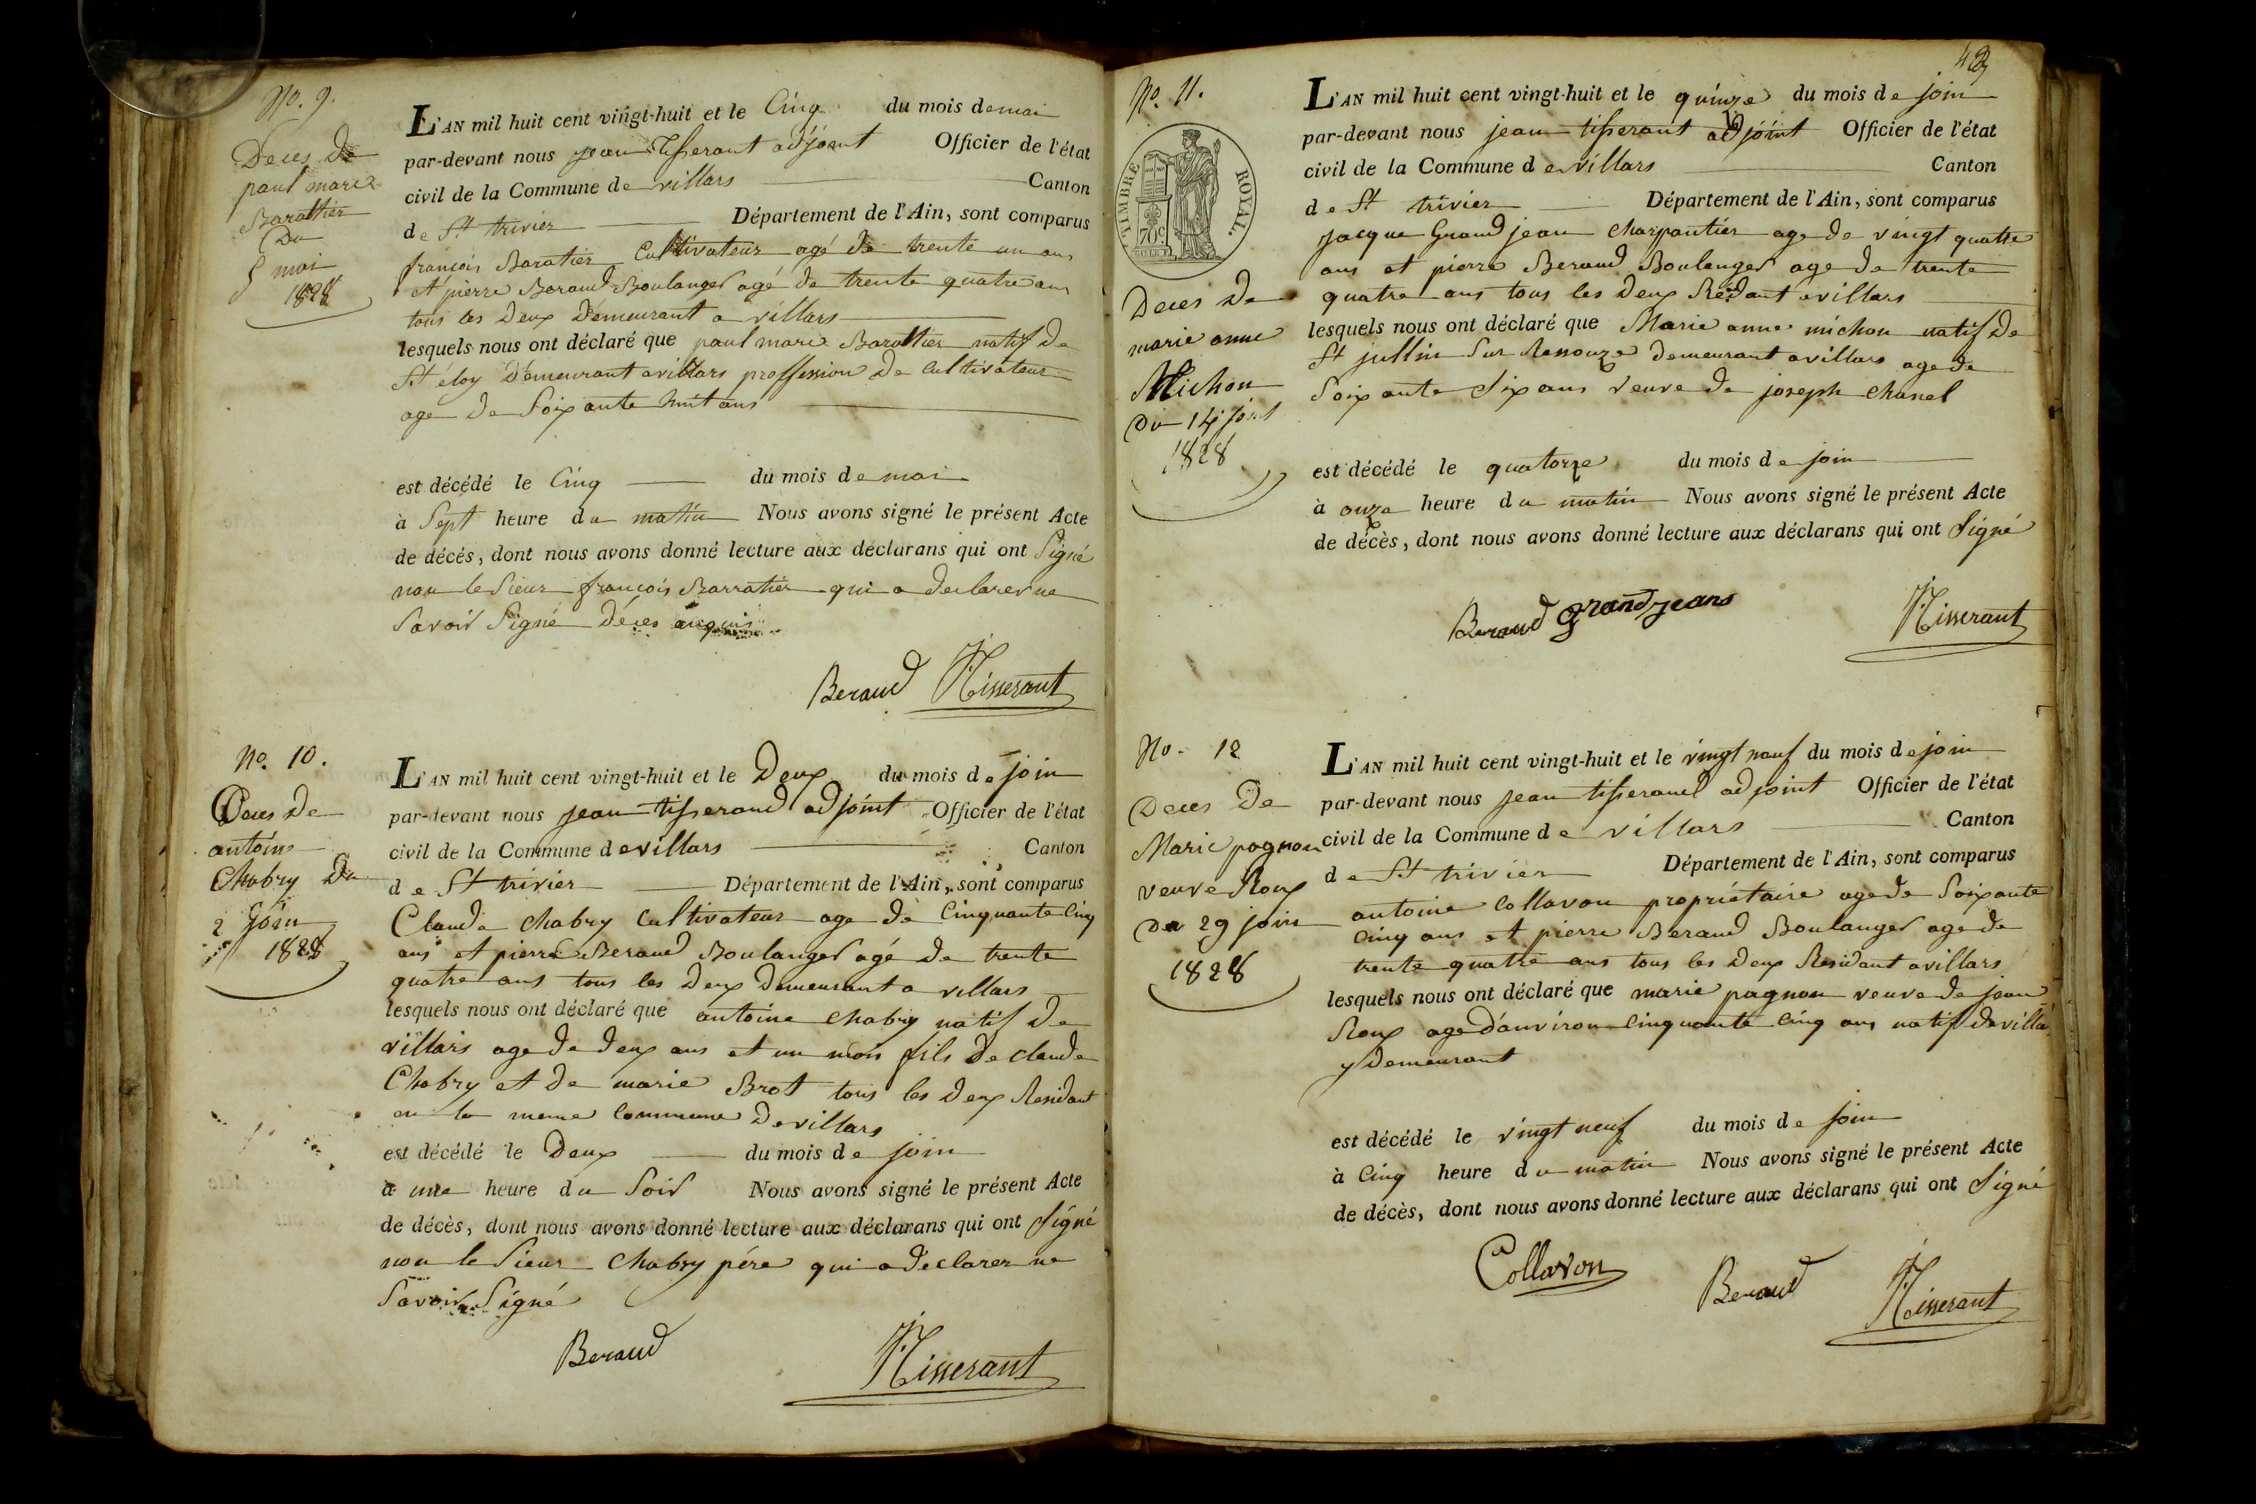 No. 9.
Deces de
paul marie
Barattier
Du
5 mai
1828
L'AN mil huit cent vingt-huit et le Cinq du mois de mai
par-devant nous jean tisserant adjoint Officier de l'état
civil de la Commune de villars Canton
de St trivier Département de l'Ain, sont comparus
françois Baratier Cultivateur agé de trente un ans
et pierre Beraud Boulanger agé de trente quatre ans
tous les deux demeurant a villars
lesquels nous ont déclaré que paul marie Barattier natif de
St éloy demeurant a villars proffession de Cultivateur
age de Soixante huit ans
est décédé le Cinq du mois de mai
à Sept heure du matin Nous avons signé le présent Acte
de décès, dont nous avons donné lecture aux déclarans qui ont Signé
non le Sieur françois Barratier qui a declarer ne
Savoir Signé Déces
Beraud JTisserant
No. 10.
Deces de
antoine
Chabry Du
2 Join
1828
L'AN mil huit cent vingt-huit et le Deux du mois de join
par-devant nous jean tisserand adjoint Officier de l'état
civil de la Commune de villars Canton
de St trivier Département de l'Ain, sont comparus
Claude Chabry Cultivateur age de Cinquante Cinq
ans et pierre Beraud Boulanger agé de trente
quatre ans tous les deux demeurant a villars
lesquels nous ont déclaré que antoine Chabry natif de
villars age de deux ans et un mois fils de claude
Chabry et de marie Brot tous les deux Residant
en la meme Commune de villars
est décédé le Deux du mois de join
à une heure du Soir Nous avons signé le présent Acte
de décès, dont nous avons donné lecture aux déclarans qui ont Signé
non le Sieur Chabry pére qui a declarer ne
Savoir Signé
Beraud JTisserant
No. 11.
TIMBRE ROYAL.
70c
Deces de
marie anne
Michon
Du 14 join
1828
L'AN mil huit cent vingt-huit et le quinze du mois de join
par-devant nous jean tisserant adjoint Officier de l'état
civil de la Commune de villars Canton
de St trivier Département de l'Ain, sont comparus
Jacque Grandjean Charpantier age de vingt quatre
ans et pierre Beraud Boulanger age de trente
quatre ans tous les deux Résidant a villars
lesquels nous ont déclaré que Marie anne michon natif de
St jullin Sur Ressouze demeurant a villars age de
Soixante Six ans veuve de joseph chanel
est décédé le quatorze du mois de join
à onze heure du matin Nous avons signé le présent Acte
de décès, dont nous avons donné lecture aux déclarans qui ont Signé
Beraud grandjeans JTisserant
No. 12
Deces de
Marie pagnon
veuve Roux
Du 29 join
1828
L'AN mil huit cent vingt-huit et le vingt neuf du mois de join
par-devant nous jean tisserand adjoint Officier de l'état
civil de la Commune de villars Canton
de St trivier Département de l'Ain, sont comparus
antoine Collavon propriétaire age de Soixante
Cinq ans et pierre Beraud Boulanger age de
trente quatre ans tous les deux Residant a villars
lesquels nous ont déclaré que marie pagnon veuve de jean
Roux age d'anviron Cinquante Cinq ans natif de villa
y demeurant
est décédé le vingt neuf du mois de Join
à Cinq heure du matin Nous avons signé le présent Acte
de décès, dont nous avons donné lecture aux déclarans qui ont Signé
Collavon Beraud JTisserant